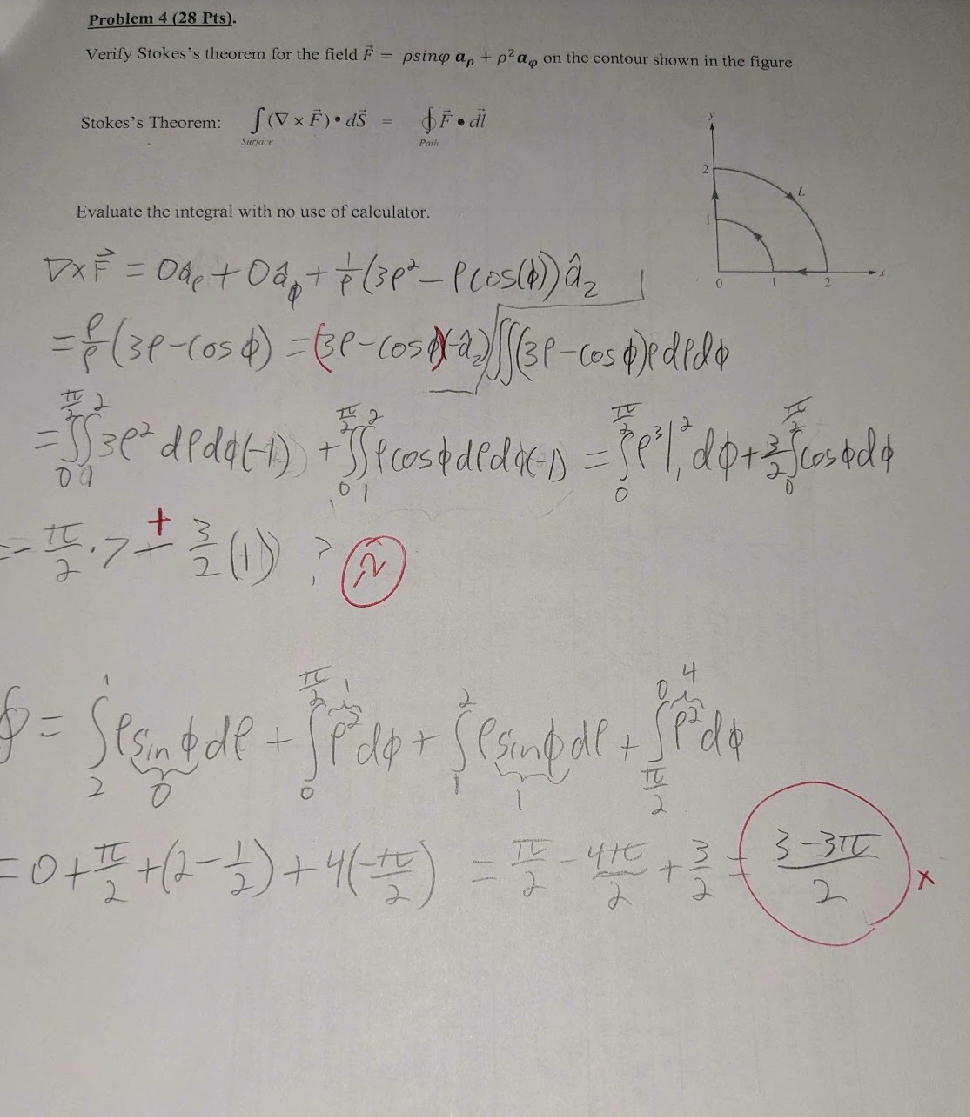 Problem 4 (28 Pts).
Verify Stokes's theorem for the field F⃗ = ρsinφ a_ρ + ρ² a_φ on the contour shown in the figure
Stokes's Theorem: ∫(∇ x F⃗)•dS⃗ = ∮F⃗•dl⃗
Surface Path
y
2
L
1
0 1 2 x
Evaluate the integral with no use of calculator.
∇×F⃗ = 0â_ρ + 0â_ϕ + 1/ρ (3ρ² - ρcos(ϕ)) â_z
= ρ/ρ (3ρ - cos ϕ) = (3ρ - cos ϕ)(-â_z) ∬(3ρ - cos ϕ)ρdρdϕ
= ∫₀^{π/2}∫₁² 3ρ² dρdϕ(-1) + ∫₀^{π/2}∫₁² ρcosϕdρdϕ(-1) = ∫₀^{π/2} ρ³|₁² dϕ + 3/2 ∫₀^{π/2} cosϕdϕ
= - π/2 · 7 + 3/2 (1) ?
∮ = ∫₂¹ ρ sin ϕ dρ + ∫₀^{π/2} ρ² dϕ + ∫₁² ρ sin ϕ dρ + ∫_{π/2}⁰ ρ² dϕ
0 1 1 4
= 0 + π/2 + (2 - 1/2) + 4(-π/2) = π/2 - 4π/2 + 3/2 = (3-3π)/2 x